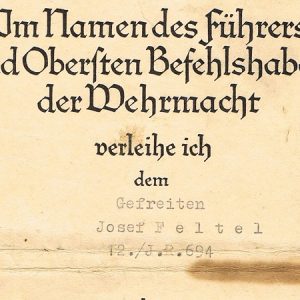 Im Namen des Führers
d Obersten Befehlshabe
der Wehrmacht
verleihe ich
dem
Gefreiten
Josef Feltel
12./J.R.694